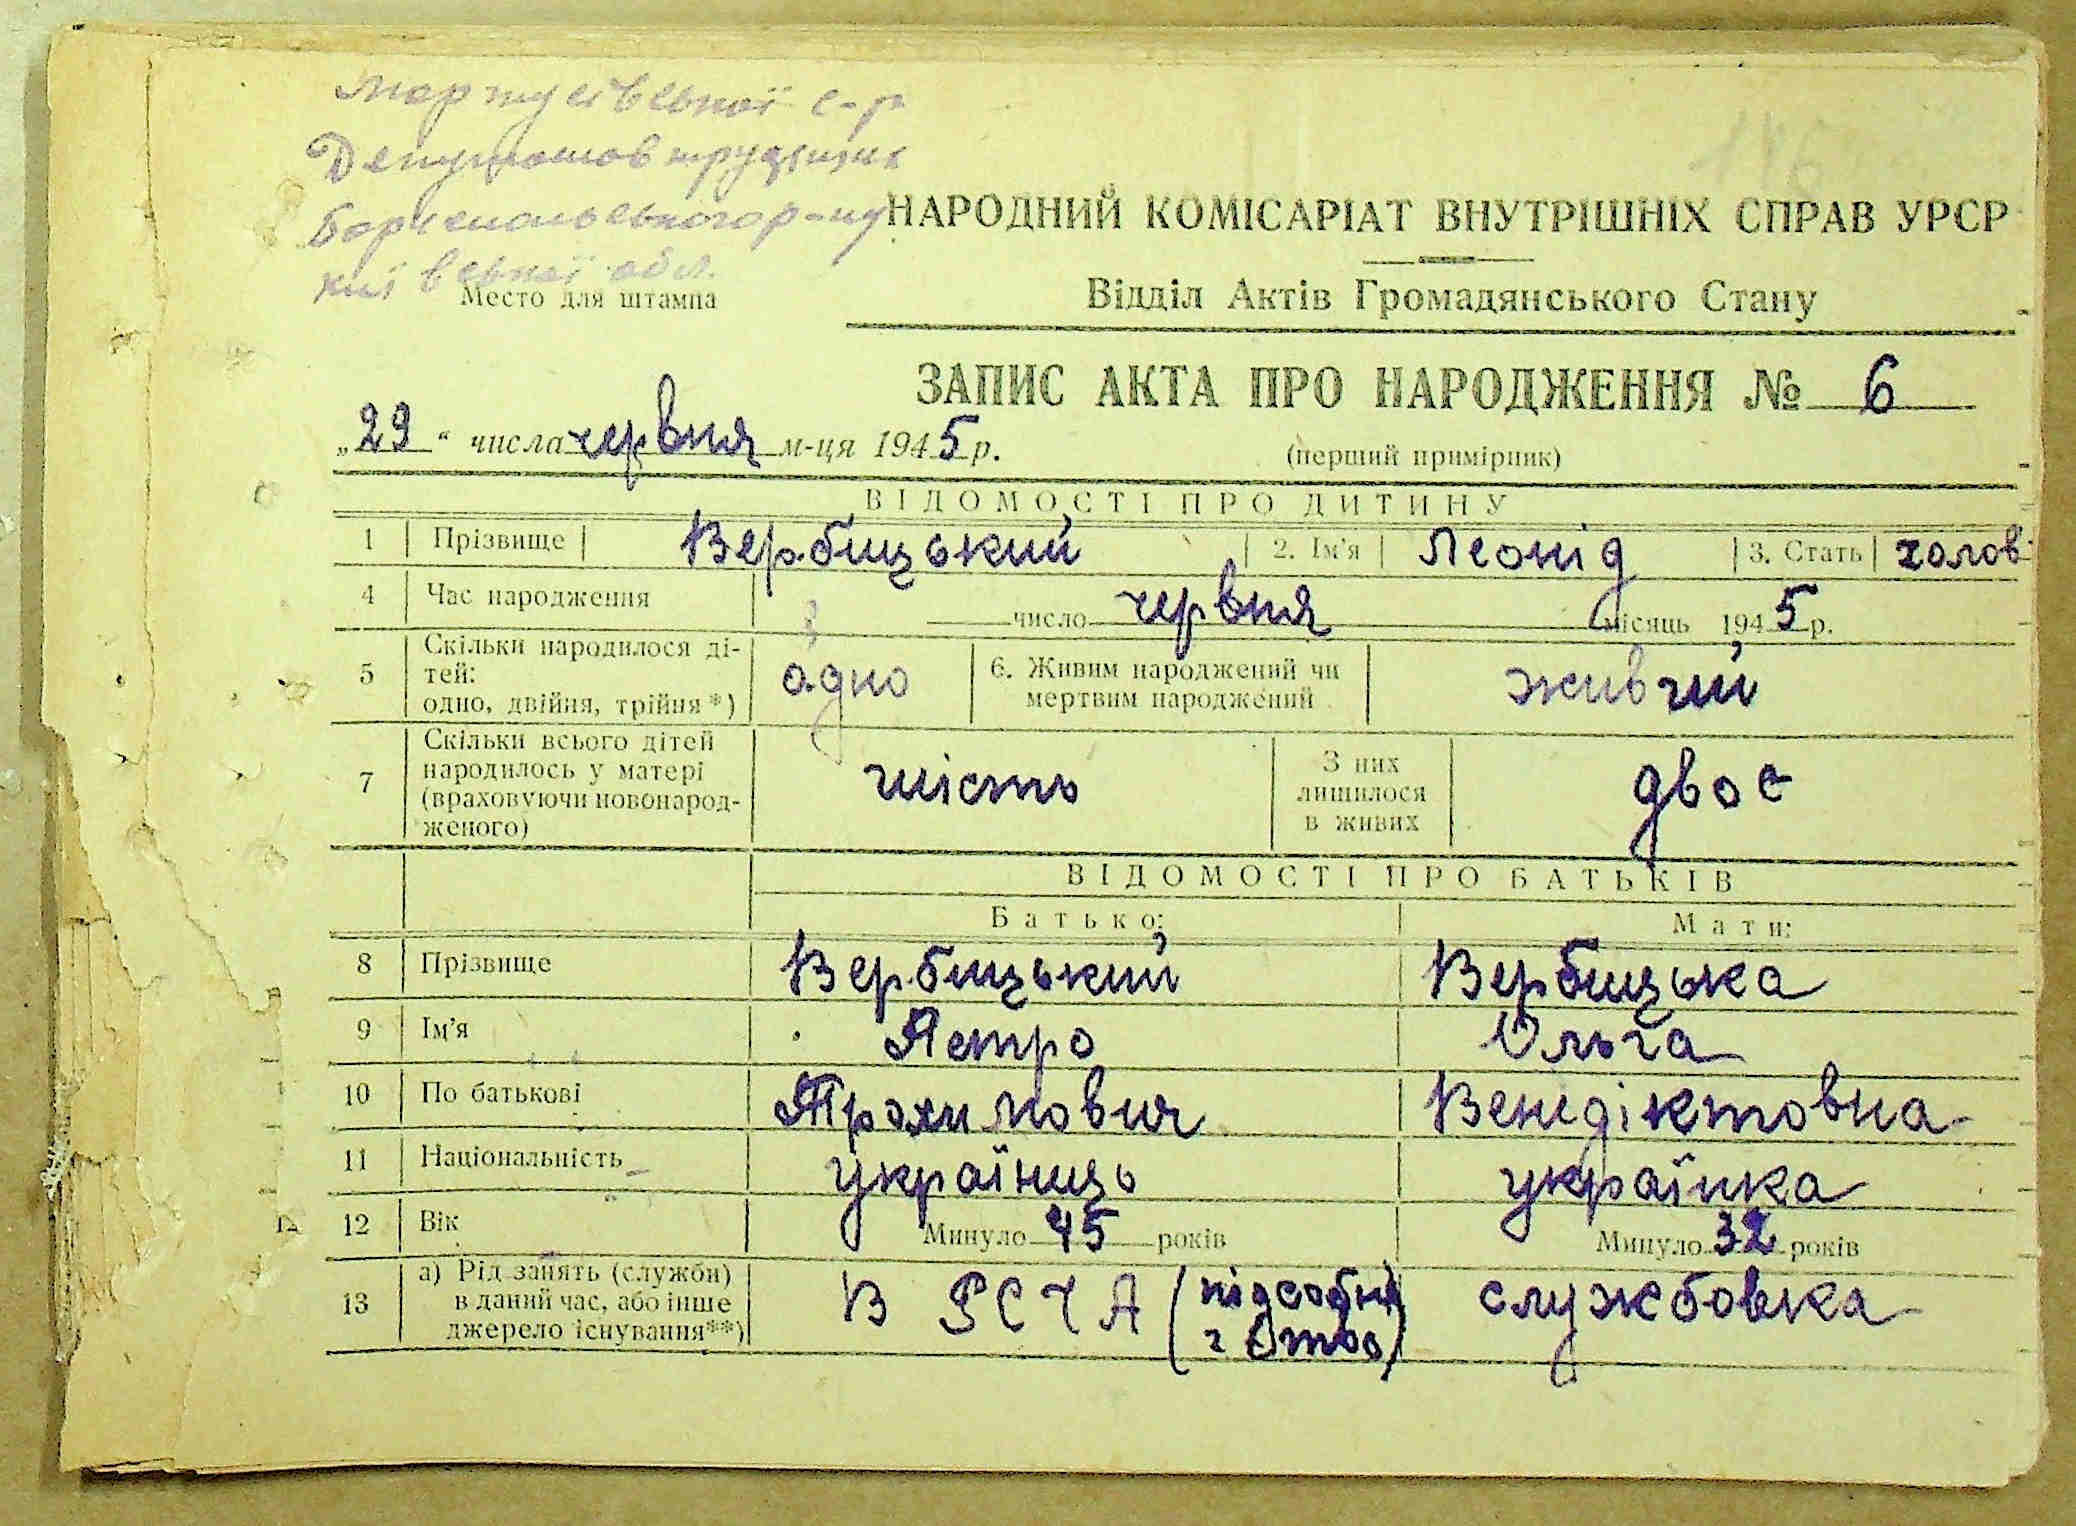 Мартусівської с-р
Депутатов трудящих
Бориспольського р-ну
Київської обл.
Место для штампа
НАРОДНИЙ КОМІСАРІАТ ВНУТРІШНІХ СПРАВ УРСР
Відділ Актів Громадянського Стану
ЗАПИС АКТА ПРО НАРОДЖЕННЯ № 6
„29“ числа червня м-ця 1945 р.
(перший примірник)
ВІДОМОСТІ ПРО ДИТИНУ
1 Прізвище Вербицький 2. Ім'я Леонід 3. Стать холов
4 Час народження число червня місяць 1945 р.
5 Скільки народилося ді-
тей:
одно, двійня, трійня*) одно 6. Живим народжений чи
мертвим народжений живчий
7 Скільки всього дітей
народилось у матері
(враховуючи новонарод-
женого) шість З них
лишилося
в живих двоє
ВІДОМОСТІ ПРО БАТЬКІВ
Батько: Мати:
8 Прізвище Вербицький Вербицька
9 Ім'я Петро Ольга
10 По батькові Трохимович Венедіктовна
11 Національність українець українка
12 Вік Минуло 45 років Минуло 32 років
13 а) Рід занять (служби)
в даний час, або інше
джерело існування**) В РСЧА (підсобне службовка